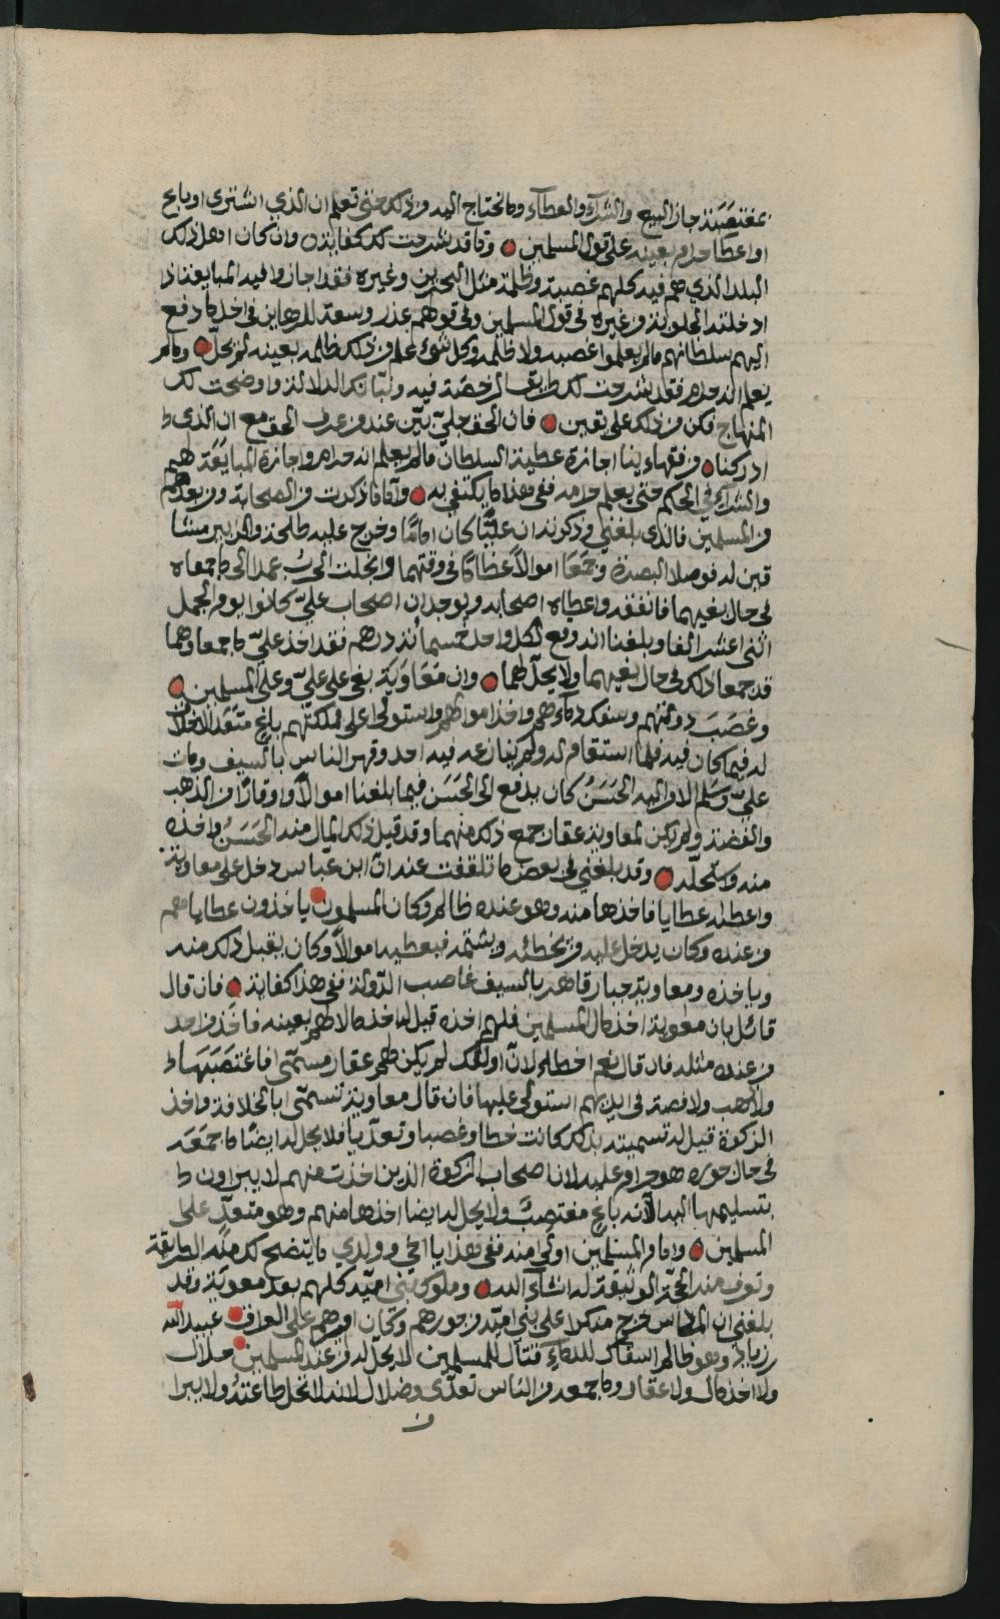 مغتصبة جاز البيع والشراء والعطاء وما تحتاج اليه من ذلك حتى تعلم ان الذي اشترى او باع
او اعطا حرام بعينه على قول المسلمين وفيما قد شرحت لك كفاية وان كان اهل ذلك
البلد الذي هم فيه كلهم غصبة وظلمة مثل البحرين وغيره فقد اجازوا فيه المبايعة اذا
ادخلته الحلوبة وغيره في قول المسلمين وفي قولهم عذر وسعة للرهاين في اخذ ما دفع
اليهم سلطانهم ما لم يعلموا غصبه ولا ظلمه وكل شيء علم من ذلك ظلمه بعينه لم يحل وما لم
يعلم انه حرام فقد شرحت لك طريق الرخصة فيه وبينا لك الدلالة واوضحت لك
المنهاج فكن من ذلك على يقين فان الحق جلي بين عند من عرف الحق مع ان الذي
ادركنا من فقهاءينا اجازة عطية السلطان ما لم يعلم انه حرام واجازة المبايعة لهم
والشراء في الحكم حتى يعلم حرامه ففي هذا ما يكتفى به واما ما ذكرت من الصحابة ومن بعدهم
من المسلمين فالذي بلغني من ذكره ان عليا كان اماما وخرج عليه طلحة والزبير
فوصلا البصرة وجمعا اموالا عظاما في وقتهما وانجلت الحرب عمد الى ما جمعاه
في حال بغيهما فانفقه واعطاه اصحابه ويوجد ان اصحاب علي كانوا يوم الجمل
اثنى عشر الفا وبلغنا انه وقع لكل واحد خمسمائة درهم فقد اخذ علي ما جمعاه وهما
قد جمعا ذلك في حال بغيهما ولا يحل لهما وان معاوية بغى على علي وعلى المسلمين
وغصب دولتهم وسفك دماءهم واخذ اموالهم واستولى على مملكتهم باغ متعد لا خلاف
له فيما كان فيه فلما استقام له ولم ينازعه فيه احد وقهر الناس بالسيف ومات
علي وسلم الامر اليه الحسن كان يدفع الى الحسن فيما بلغنا اموالا واوقارا من الذهب
والفضة ولم يكن لمعاوية عقار جمع ذلك منهما وقد قيل ذلك المال منه الحسن واخذه
منه واستحله وقد بلغني في بعض ما تلقفت عنه ان ابن عباس دخل على معاوية
واعطاه عطايا فاخذها منه وهو عنده ظالم وكان المسلمون ياخذون عطاياهم
من عنده وكان يدخل عليه من يخطئه ويشتمه فيعطيه اموالا وكان يقبل ذلك منه
وياخذه ومعاوية جبار قاهر بالسيف غاصب الدولة ففي هذا كفاية فان قال
قائل بان معوية اخذ مال المسلمين فلهم اخذه قيل له اخذ مالا لهم بعينه فاخذ من احد
من عنده مثله فان قال نعم اخطا لان اولئك لم يكن لهم عقار مسمى فاغتصبها
ولا ذهب ولا فضة في ايديهم استولى عليها فان قال معاوية تسمى بالخلافة واخذ
الزكوة قيل له تسميته بذلك كانت خطا وغصبا وتعديا فلا يحل له ايضا ما جمعه
في حال جوره هو حرام عليه لان اصحاب الزكوة الذين اخذت منهم لا يبراون
بتسليمها اليه لانه باغ مغتصب ولا يحل له ايضا اخذها منهم وهو متعد على
المسلمين وامام المسلمين اولى منه ففي هذا يا اخي وولدي ما يتضح لك منه الطريقة
وتعرف منه الحجة الوثيقة له ان شاء الله وملوك بني امية كلهم بعد معوية وقد
بلغني ان المرداس خرج منكرا على بني امية من جورهم وكان اميرهم على العراق عبيد الله
بن زياد وهو ظالم سفاك للدماء قتال للمسلمين لا يحل له من عند المسلمين حلال
ولا اخذ مال ولا عقار وما جمعه من الناس تعدى وضلال لانه لا تحل طاعته ولا يبرا